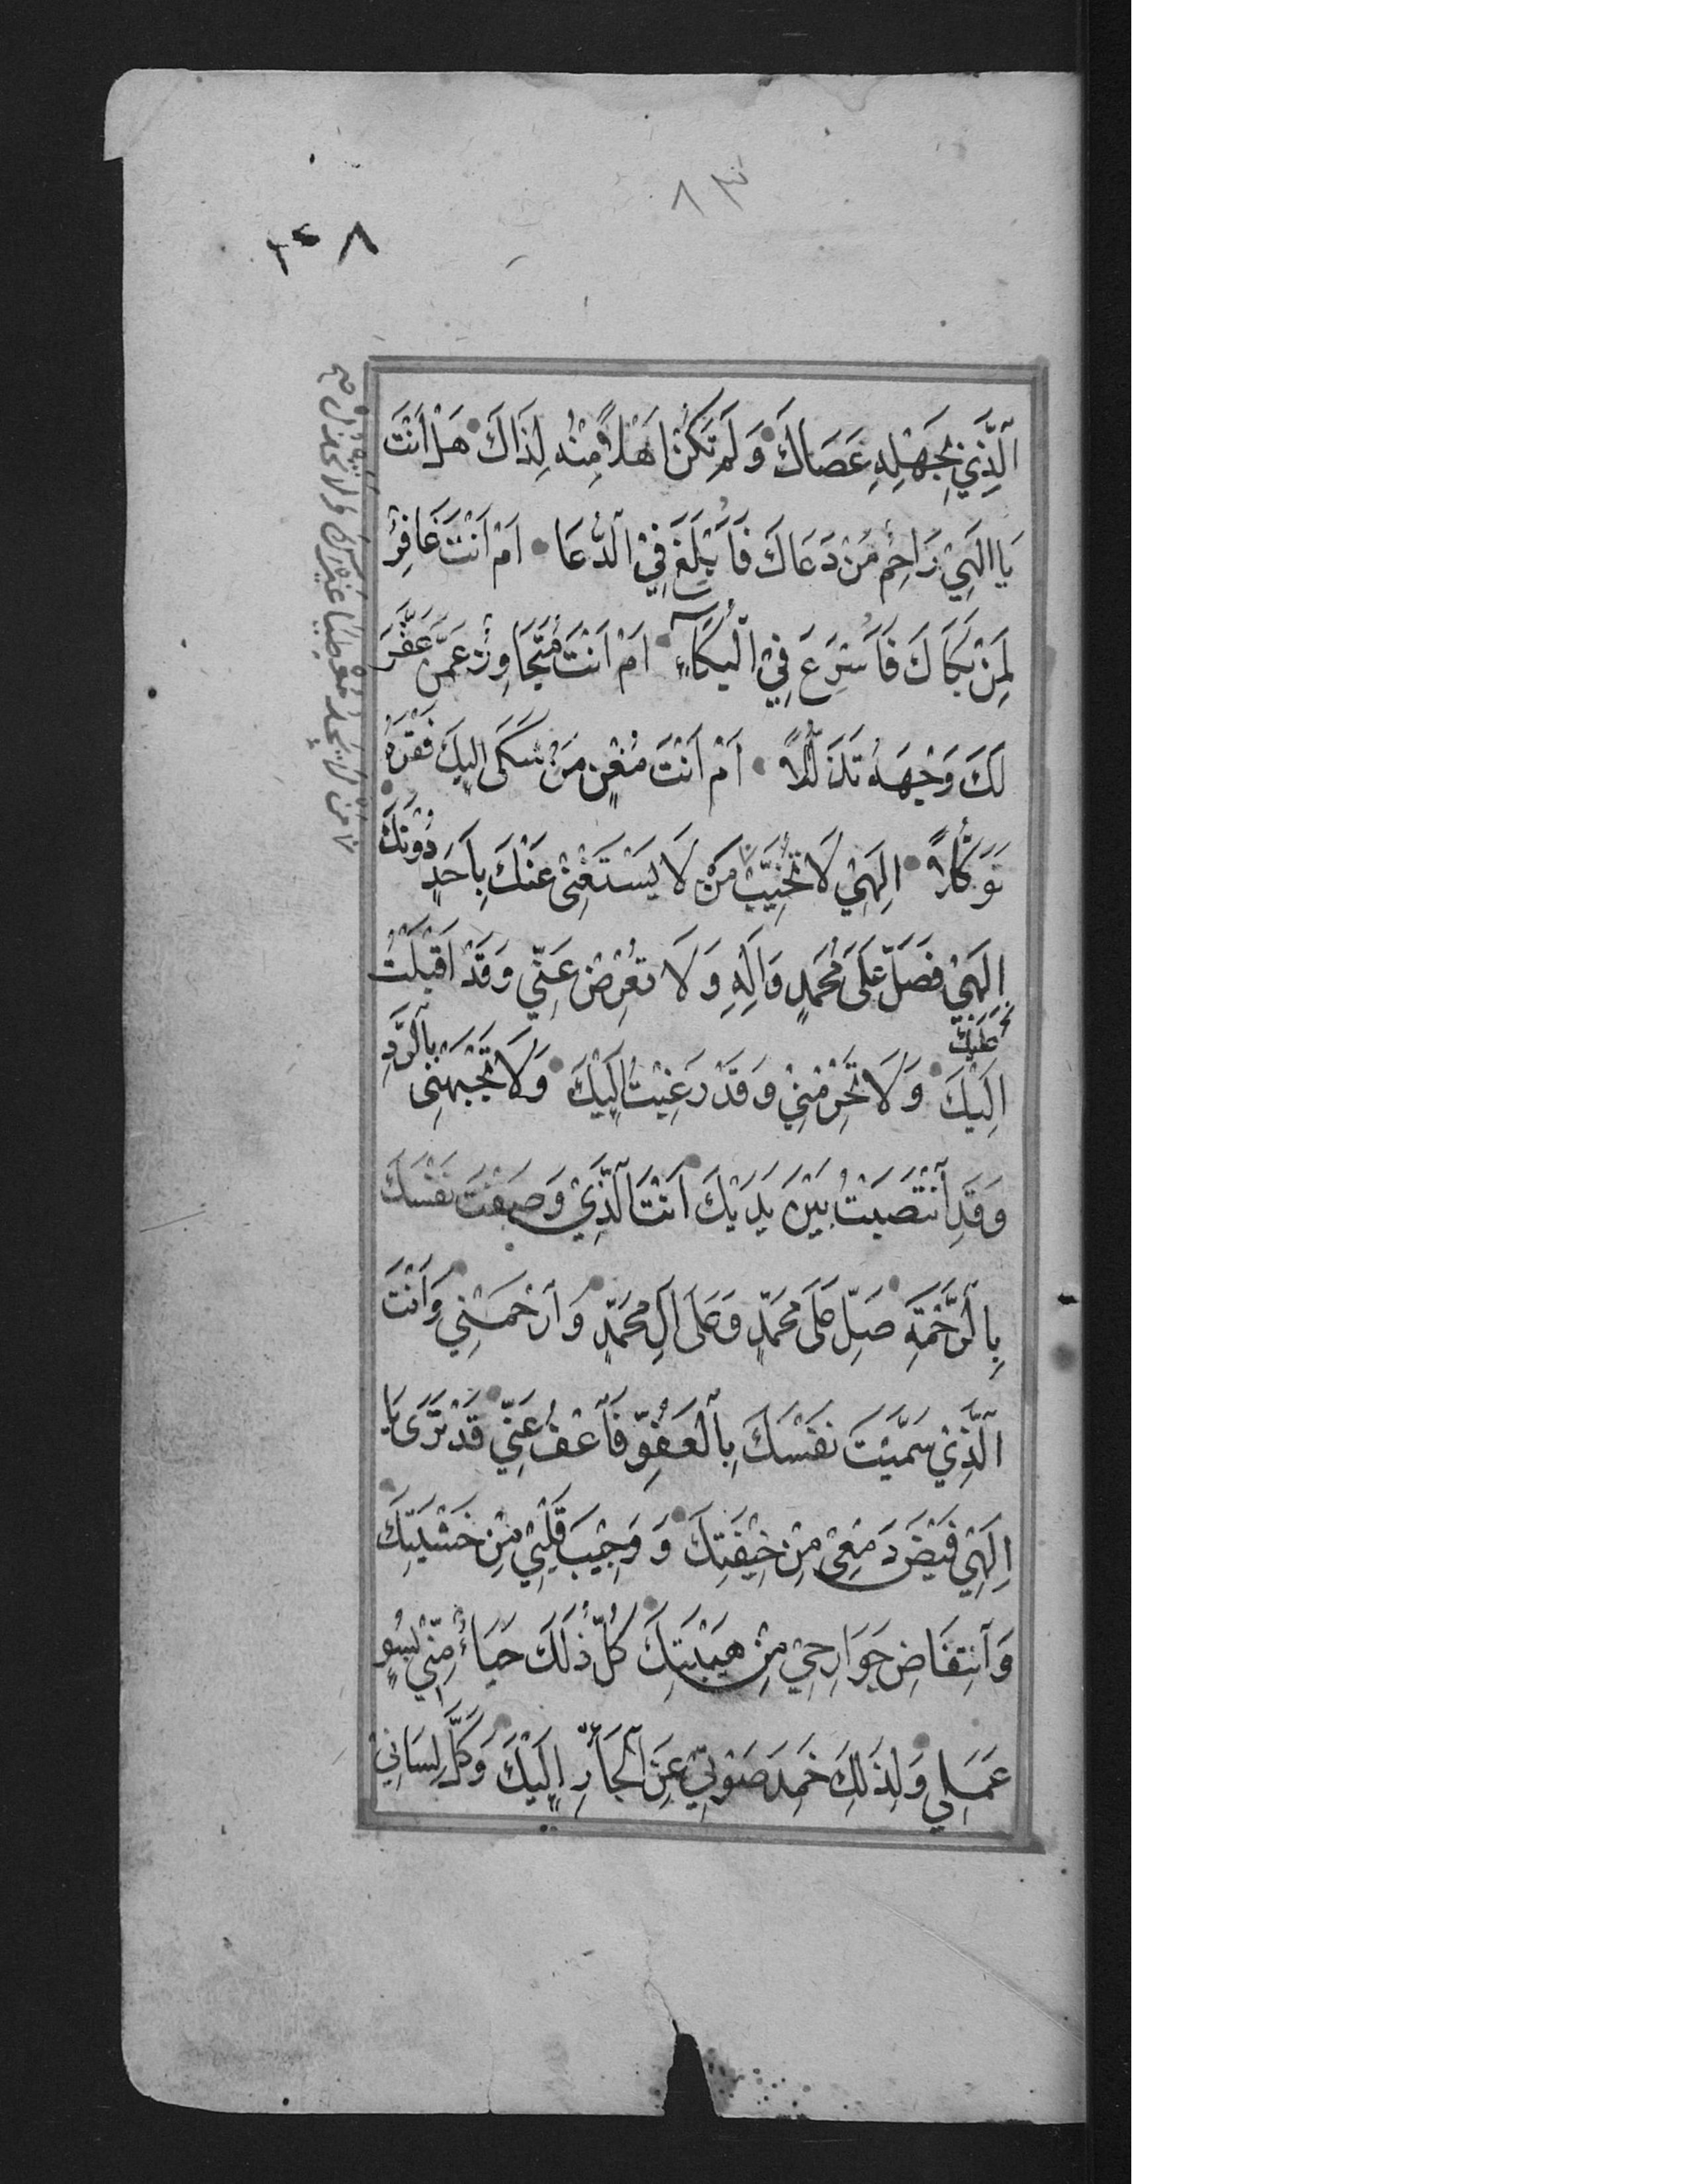 ٨٣
٢٤٨
اَلَّذِي بِجَهْلِهِ عَصَاكَ وَلَمْ تَكُنْ اَهْلًا مِنْهُ لِذَاكَ هَلْ اَنْتَ
يَا اِلَهِي رَاحِمُ مَنْ دَعَاكَ فَاُبْلِغَ فِي الدُّعَا اَمْ اَنْتَ غَافِرُ
لِمَنْ بَكَاكَ فَاُسْرِعَ فِي الْبُكَاءِ اَمْ اَنْتَ مُتَجَاوِزٌ عَمَّنْ عَفَّرَ
لَكَ وَجْهَهُ تَذَلُّلًا اَمْ اَنْتَ مُغْنٍ مَنْ شَكَى اِلَيْكَ فَقْرَهُ
تَوَكُّلًا اِلَهِي لَا تُخَيِّبْ مَنْ لَا يَسْتَغْنِى عَنْكَ بِاَحَدٍ دُونَكَ
اِلَهِي فَصَلِّ عَلَى مُحَمَّدٍ وَالِهِ وَلَا تُعْرِضْ عَنِّي وَقَدْ اَقْبَلْتُ
عَلَيْكَ
اِلَيْكَ وَلَا تَحْرِمْنِي وَقَدْ رَغِبْتُ اِلَيْكَ وَلَا تَجْبَهْنِى بِالرَّدِّ
وَقَدِ انْتَصَبْتُ بَيْنَ يَدَيْكَ اَنْتَ الَّذِي وَصَفْتَ نَفْسَكَ
بِالرَّحْمَةِ صَلِّ عَلَى مُحَمَّدٍ وَعَلَى آلِ مُحَمَّدٍ وَارْحَمْنِي وَاَنْتَ
الَّذِي سَمَّيْتَ نَفْسَكَ بِالْعَفْوِ فَاعْفُ عَنِّي قَدْ تَرَى يَا
اِلَهِي فَيْضَ دَمْعِى مِنْ خِيفَتِكَ وَوَجِيبَ قَلْبِي مِنْ خَشْيَتِكَ
وَانْتِفَاضَ جَوَارِحِي مِنْ هَيْبَتِكَ كُلُّ ذَلِكَ حَيَاءً مِنِّي لِسُوءِ
عَمَلِي وَلِذَلِكَ خَمَدَ صَوْتِي عَنِ الْجَأْرِ اِلَيْكَ وَكَلَّ لِسَانِي
مَنْ لَا يَجِدُ مُعْطِيًا غَيْرَكَ وَلَا تَخْذُلْ